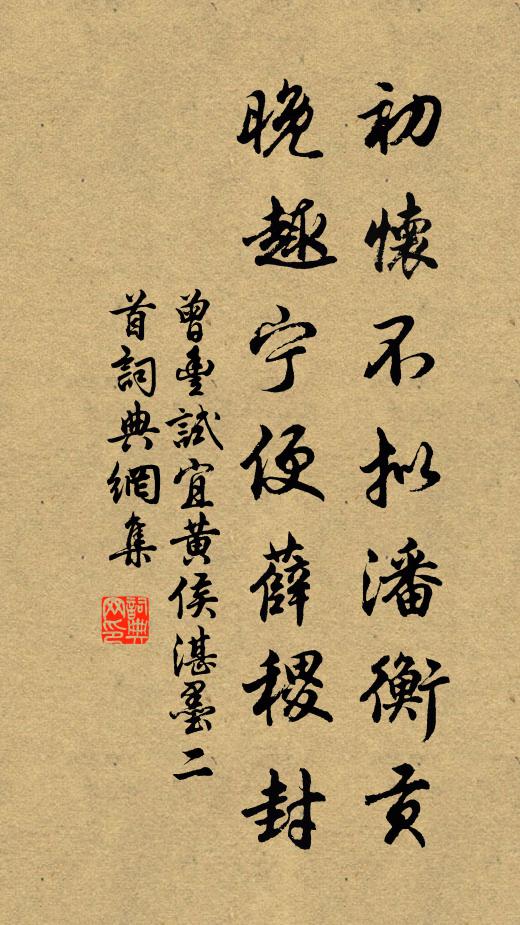 初懷不拟潘衡貢
晚趣宁便薛稷封
曾豊試宜黄侯湛墨二
首詞典網集
詞典
网印